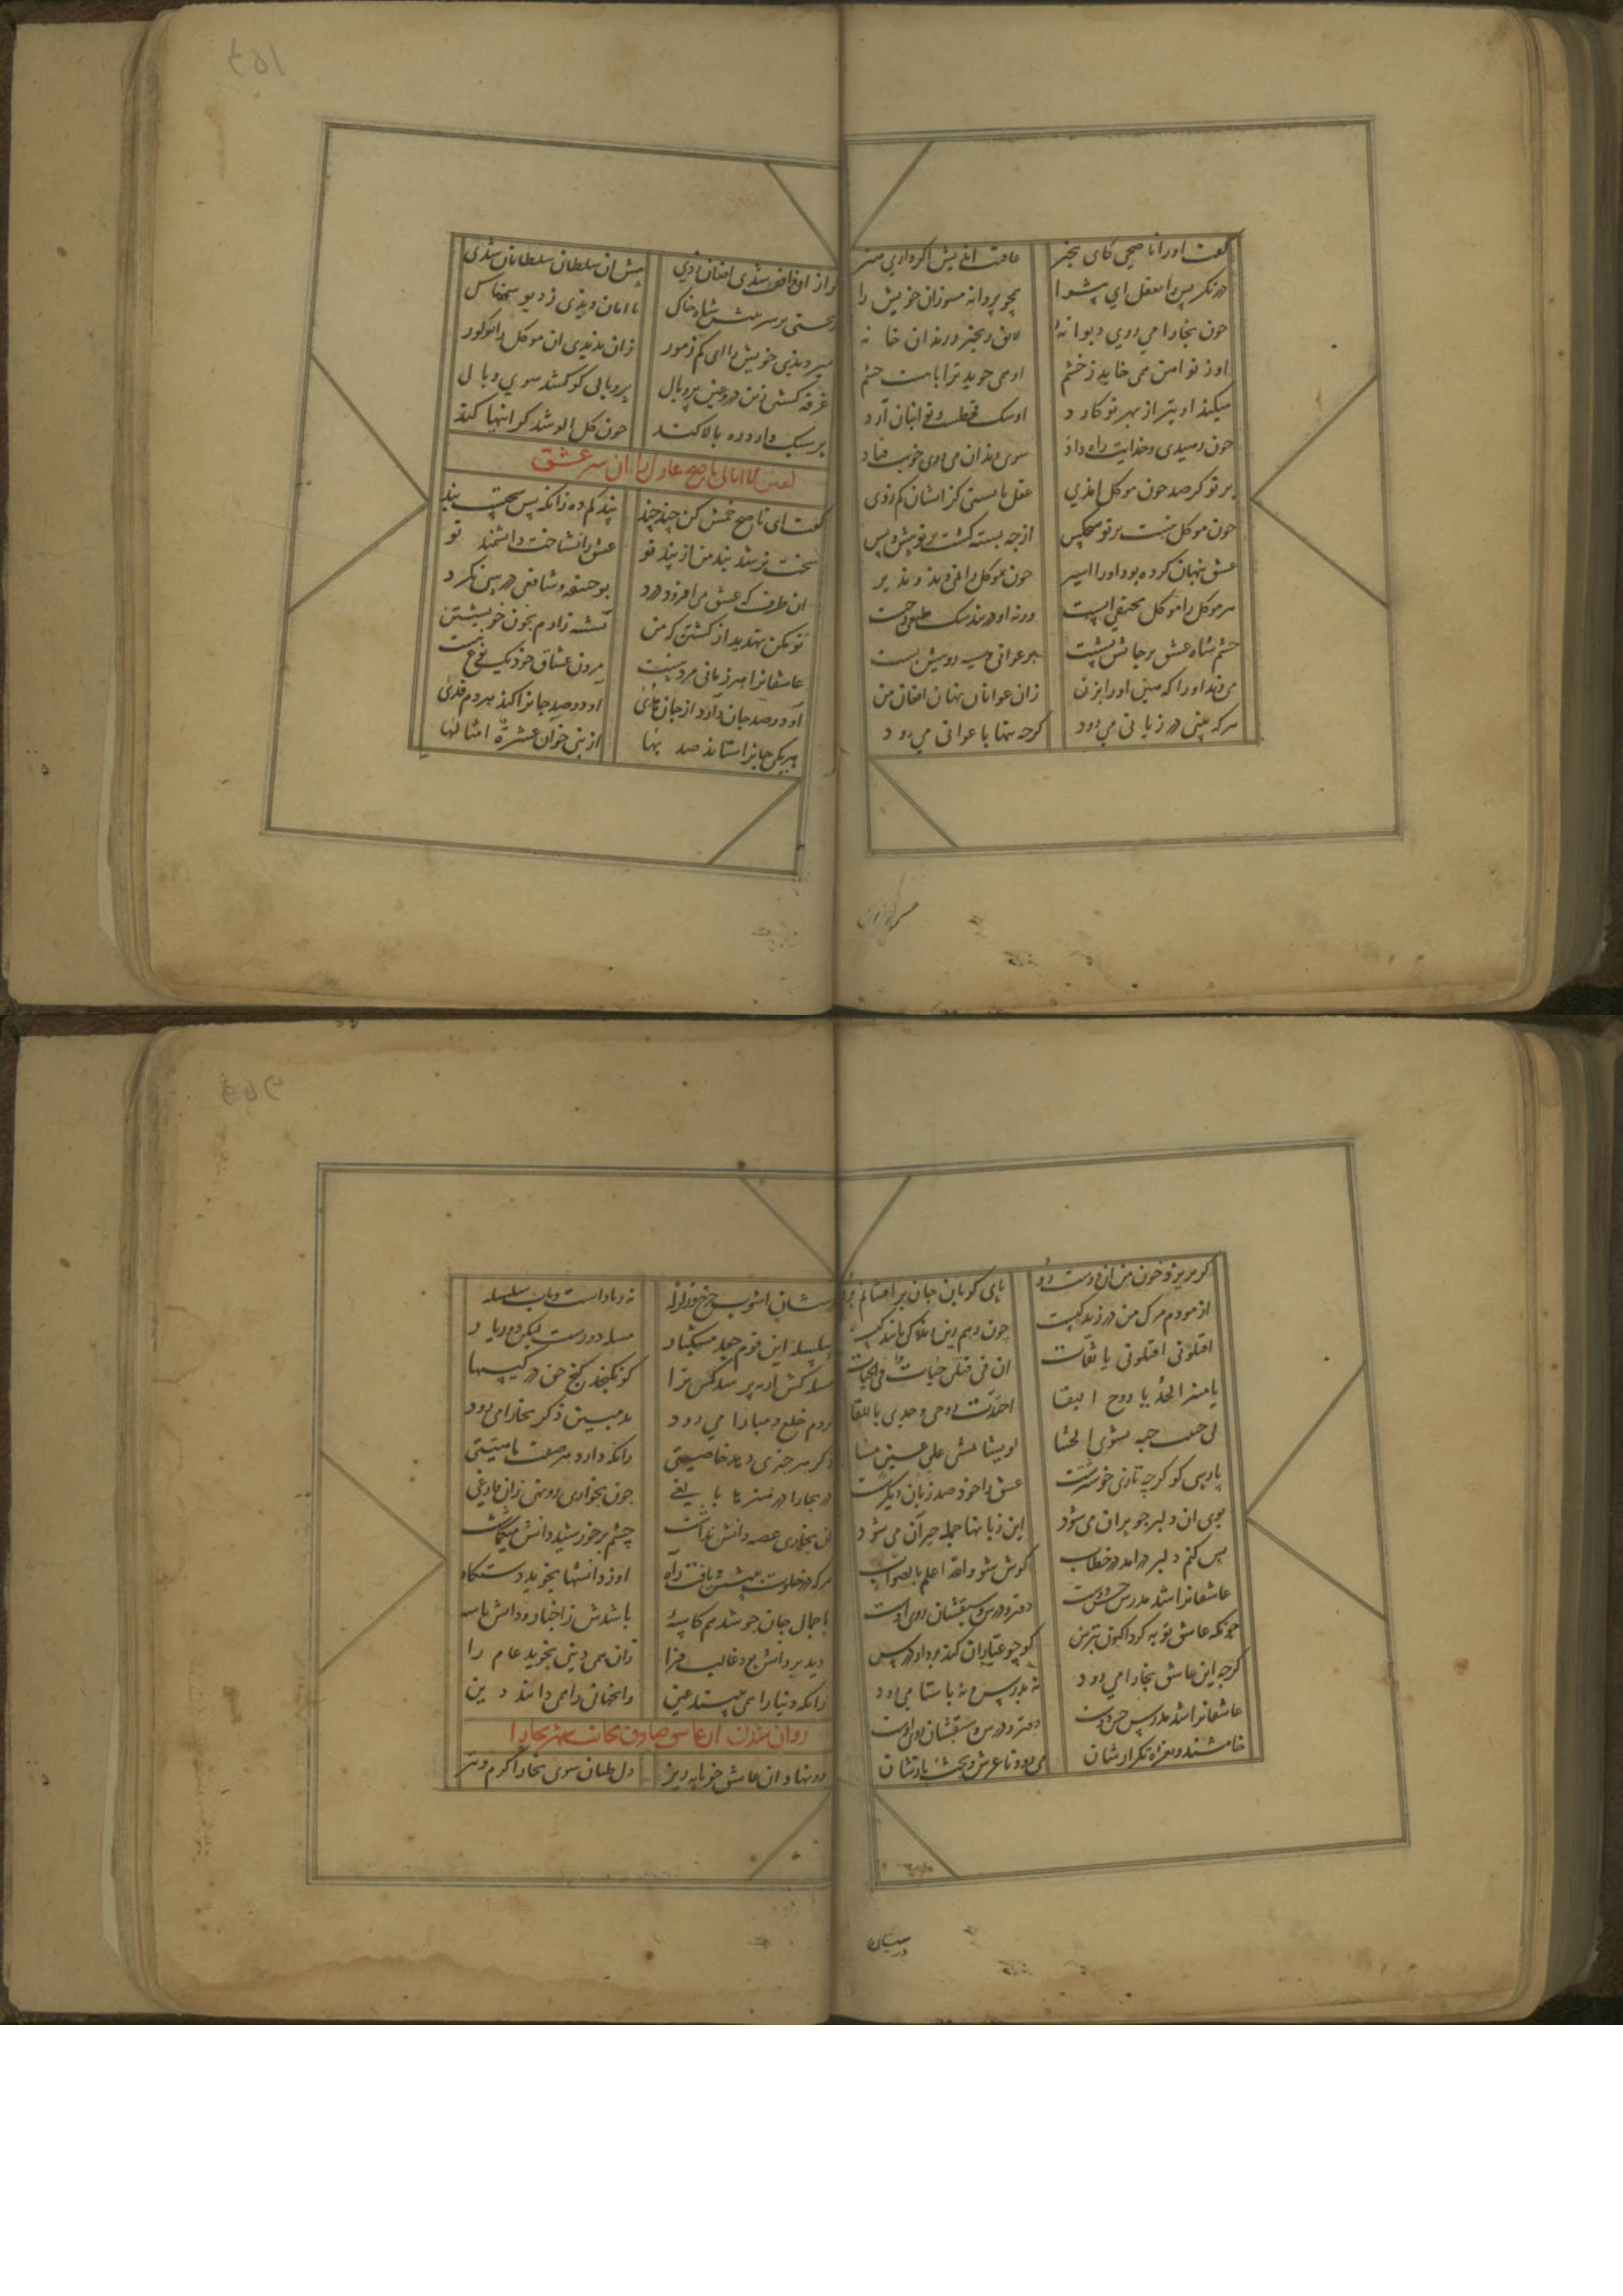 گفت اورا ناصحی کای بیخبر عاقبت اندیش اکر داری هنر
درنکر پس را بعقل ای پیشوا همچو پروانه مسوزان خویش را
چون بخارا می روی دیوانهٔ لایق زنجیر و زندان خانه
او ز تو آهن همی خاید ز خشم او همی جوید ترا با بیست چشم
میکند او تیز از بهر تو کارد او سک قحطست و تو انبان آرد
چون رهیدی و خدایت راه داد سوی زندان می روی خوب فتاد
بر تو کر صد چون موکل امذی عقل بایستی کز ایشان کم زدی
چون موکل نیست بر تو هیچکس از چه بسته کشت بر تو پیش و پس
عشق پنهان کرده بود اورا اسیر چون موکل را نمی دید نذیر
هر موکل را موکل مختفی است ورنه او در بند سک طبعی چیست
خشم شاه عشق بر جانش نشست بر عوانی و سیه رویش بست
می زند اورا که هین اورا بزن زان عوانان نهان افغان من
هرکه بینی در زیانی می رود کرچه تنها با عوانی می رود
کر از او واقف شدی افغان زدی پیش آن سلطان سلطانان شدی
ریختی بر سر پیش شاه خاک تا امان دیدی ز دیو سهمناک
میر دیدی خویش را ای کم ز مور زان ندیدی آن موکل را تو کور
غره کشتی زین دروغین پر و بال پر و بالی کو کشد سوی وبال
پر سبک دارد ره بالا کند چون کل آلو شد کرانیها کند
گفت ای ناصح خمش کن چند چند پند کم ده زانکه بس سختست بند
سخت تر شد بند من از پند تو عشق را نشناخت دانشمند تو
آن طرف که عشق می افزود درد بوحنیفه و شافعی درسی نکرد
تو مکن تهدید از کشتن که من تشنه زارم بخون خویشتن
عاشقانرا هر زمانی مردنیست مردن عشاق خود یک نوع نیست
او دو صد جان دارد از جان هدی او دو صد جانرا کند هر دم فدی
هر یکی جانرا ستاند صد بها از نبی خوان عشرة امثالها
کر بریزد خون من آن دوست رو پای کوبان جان برافشانم برو
آزمودم مرک من در زندکیست چون رهم زین زندکی پایندکیست
اقتلونی اقتلونی یا ثقات ان فی قتلی حیات فی الحیات
یا منیر الخد یا روح البقا اجتذب روحی وجد لی باللقا
لی حبیب حبه یشوی الحشا لو یشا یمشی علی عینی مشا
پارسی کو کرچه تازی خوشترست عشق را خود صد زبان دیکرست
بوی آن دلبر چو پران می شود این زبانها جمله حیران می شود
بس کنم دلبر درامد در خطاب کوش شو والله اعلم بالصواب
عاشقانرا شد مدرس حسن دوست دفتر و درس و سبقشان روی اوست
چونکه عاشق توبه کرد اکنون بترس کو چو عیاران کند بر دار درس
کرچه این عاشق بخارا می رود نه بدرس و نه باستا می رود
عاشقانرا شد مدرس حسن دوست دفتر و درس و سبقشان روی اوست
خامشند و نعره تکرارشان می رود تا عرش و تخت یارشان
درسشان آشوب و چرخ و زلزله نه زیاداتست و باب سلسله
سلسله این قوم جعد مشکبار مسله دورست لیکن دور یار
مسله کیس ار بپرسد کس ترا کو نکنجد کنج حق در کیسها
کر دم خلع و مبارا می رود بد مبین ذکر بخارا می رود
ذکر هر چیزی دهد خاصیتی زانکه دارد هر صفت ماهیتی
در بخارا در هنرها بالغی چون بخواری رو نهی زان فارغی
آن بخاری غصه دانش نداشت چشم بر خورشید دانش میکماشت
هرکه در خلوت ببینش یافت راه او ز دانشها نجوید دستکاه
با جمال جان چو شد هم کاسهٔ باشدش ز اخبار و دانش تاسه
دید بر دانش بود غالب فرا زان همی دنیا بچربد عام را
زانکه دنیا را همی بینند عین وانجهان را همی دانند دین
روان شدن آن عاشق صادق بجانب شهر بخارا
رو نهاد آن عاشق خونابه ریز دل طپان سوی بخارا گرم و تیز